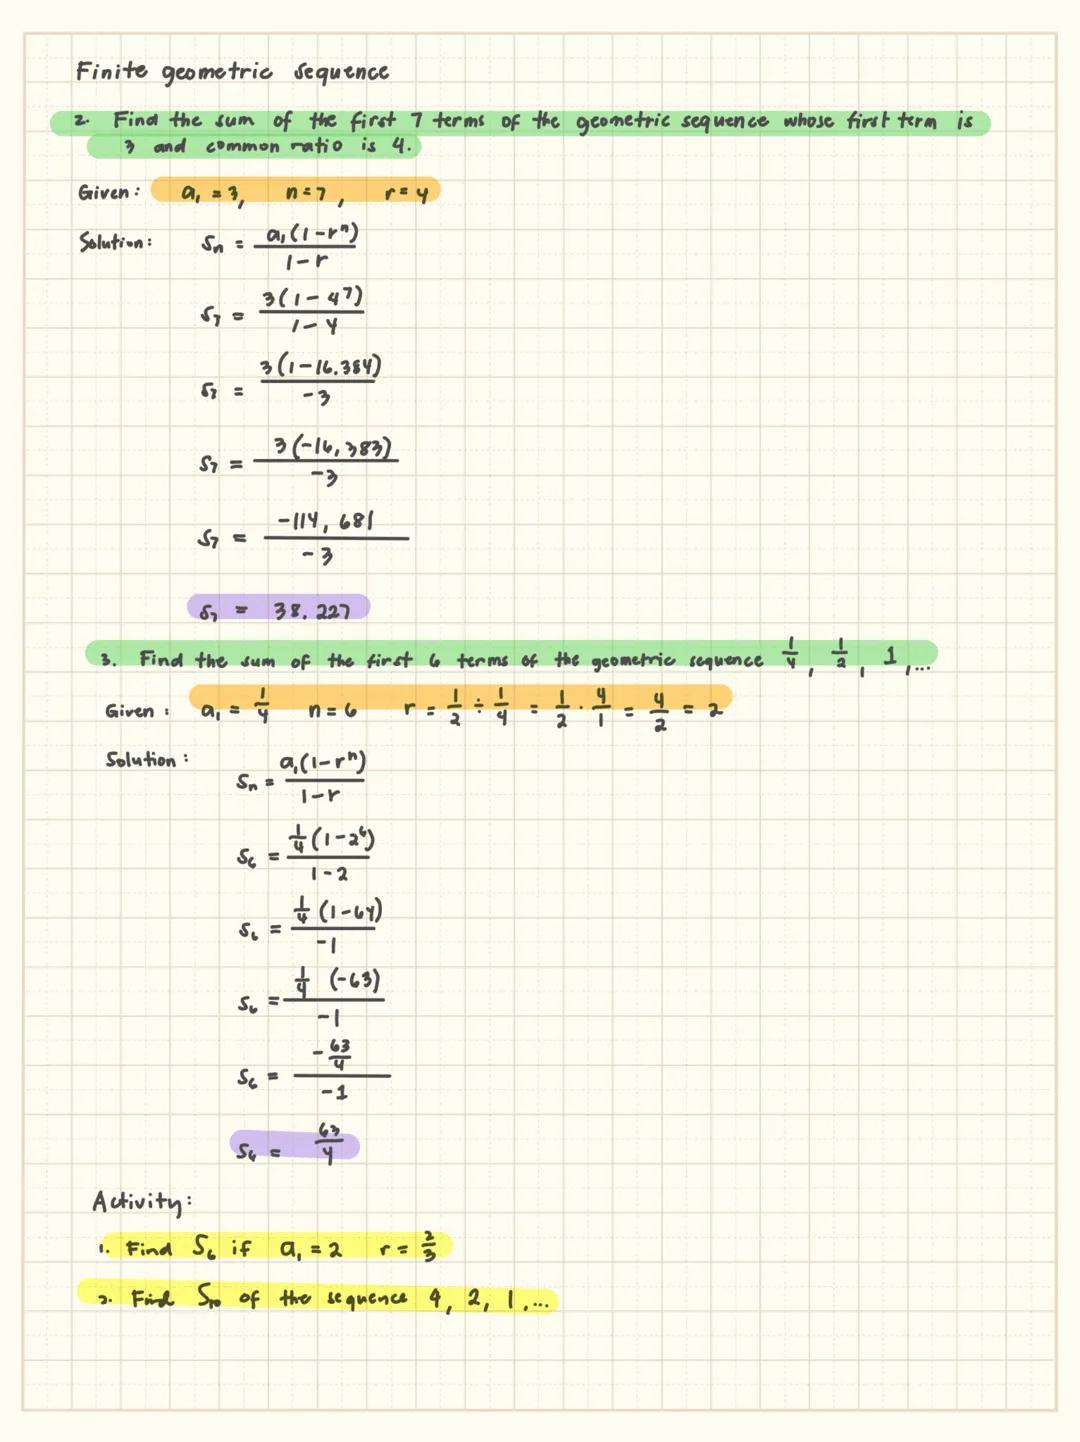 Finite geometric sequence
2. Find the sum of the first 7 terms of the geometric sequence whose first term is
3 and common ratio is 4.
Given: a₁ = 3, n = 7, r = 4
Solution: Sₙ = a₁(1-rⁿ) / 1-r
S₇ = 3(1-4⁷) / 1-4
S₇ = 3(1-16.384) / -3
S₇ = 3(-16,383) / -3
S₇ = -114,681 / -3
S₇ = 38.227
3. Find the sum of the first 6 terms of the geometric sequence 1/4, 1/2, 1,...
Given: a₁ = 1/4 n = 6 r = 1/2 ÷ 1/4 = 1/2 · 4/1 = 4/2 = 2
Solution: Sₙ = a₁(1-rⁿ) / 1-r
S₆ = 1/4 (1-2⁶) / 1-2
S₆ = 1/4 (1-64) / -1
S₆ = 1/4 (-63) / -1
S₆ = -63/4 / -1
S₆ = 63/4
Activity:
1. Find S₆ if a₁ = 2 r = 2/3
2. Find S₁₀ of the sequence 4, 2, 1,...